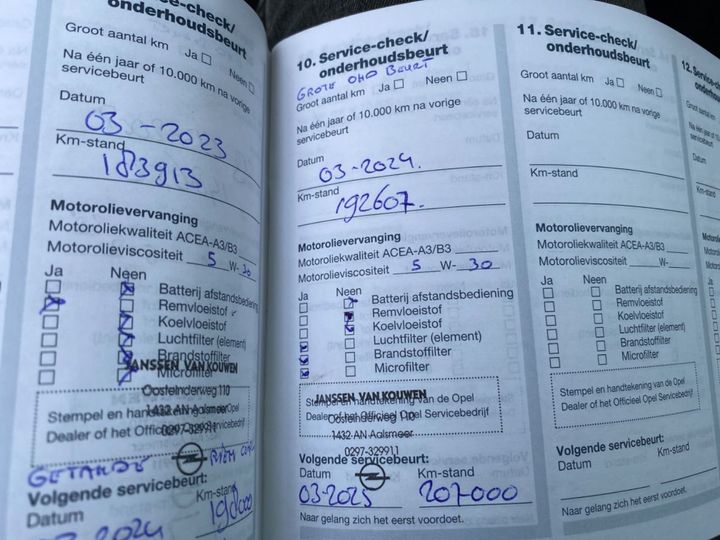 vice-check/
onderhoudsbeurt
Groot aantal km Ja Neen
Na één jaar of 10.000 km na vorige
servicebeurt
Datum
03-2023
Km-stand
183913
Motorolievervanging
Motoroliekwaliteit ACEA-A3/B3
Motorolieviscositeit 5 W-30
Ja Neen
Batterij afstandsbediening
Remvloeistof
Koelvloeistof
Luchtfilter (element)
Brandstoffilter
Microfilter
JANSSEN VAN KOUWEN
Oosteinderweg 110
1432 AN Aalsmeer
0297-329911
Stempel en handtekening van de Opel
Dealer of het Officieel Opel Servicebedrijf
GETANDE RIEM
Volgende servicebeurt:
Datum Km-stand
2024 198000
10. Service-check/
onderhoudsbeurt
GROTE OHD BEURT
Groot aantal km Ja Neen
Na één jaar of 10.000 km na vorige
servicebeurt
Datum
03-2024.
Km-stand
192607.
Motorolievervanging
Motoroliekwaliteit ACEA-A3/B3
Motorolieviscositeit 5 W-30
Ja Neen
Batterij afstandsbediening
Remvloeistof
Koelvloeistof
Luchtfilter (element)
Brandstoffilter
Microfilter
JANSSEN VAN KOUWEN
Oosteinderweg 110
1432 AN Aalsmeer
0297-329911
Stempel en handtekening van de Opel
Dealer of het Officieel Opel Servicebedrijf
Volgende servicebeurt:
Datum Km-stand
03-2025 207000
Naar gelang zich het eerst voordoet.
11. Service-check/
onderhoudsbeurt
Groot aantal km Ja Neen
Na één jaar of 10.000 km na vorige
servicebeurt
Datum
Km-stand
Motorolievervanging
Motoroliekwaliteit ACEA-A3/B3
Motorolieviscositeit W-
Ja Neen
Batterij afstandsbediening
Remvloeistof
Koelvloeistof
Luchtfilter (element)
Brandstoffilter
Microfilter
Stempel en handtekening van de Opel
Dealer of het Officieel Opel Servicebedrijf
Volgende servicebeurt:
Datum Km-stand
Naar gelang zich het eerst voordoet.
12. Service
onderho
Groot aantal km
Na één jaar of 10.
servicebeurt
Datum
Km-stand
Motorolieverva
Motoroliekwalite
Motorolieviscos
Ja